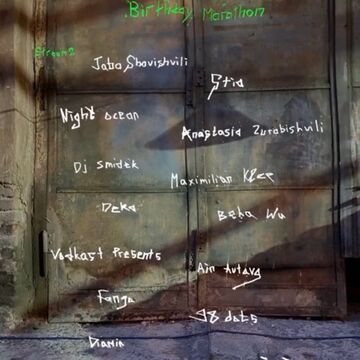 Birthday Marathon
Stream 2
Jaba Shavishvili
Stia
Night ocean
Anastasia Zurabishvili
Dj smidek
Maximilian Klee
Deka
Beba Wu
Vodkast Presents
Ain
Fanga
98 dots